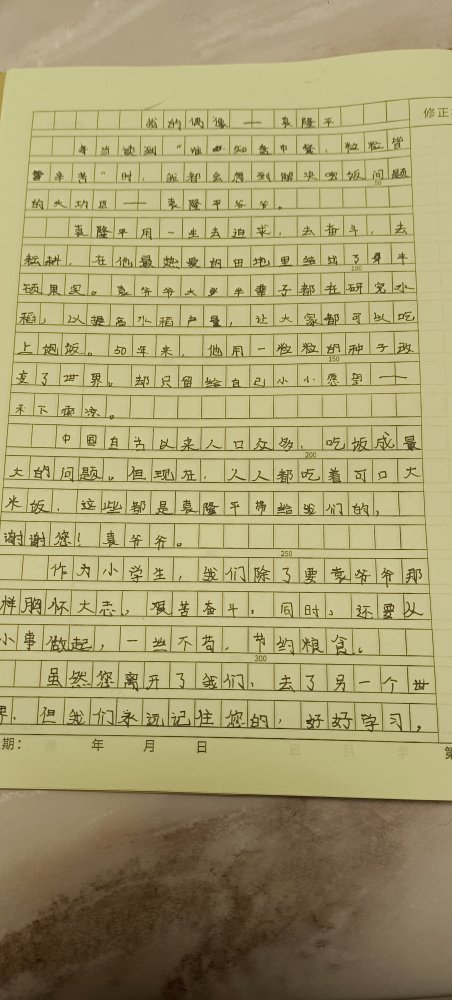 我的偶像——袁隆平
修正
每当读到“谁知盘中餐，粒粒皆
辛苦”时，我都会想到解决吃饭问题
50
的大功臣——袁隆平爷爷。
袁隆平用一生去追求，去奋斗，去
耘耕，在他最热爱的田地里给出了丰
100
硕果实。袁爷爷大半辈子都在研究水
稻，以提高水稻产量，让大家都可以吃
上饱饭。50年来，他用一粒粒的种子改
150
变了世界。却只留给自己小小愿望——
禾下乘凉。
中国自古以来人口众多，吃饭成最
200
大的问题。但现在，人人都吃着可口大
米饭，这些都是袁隆平带给我们的，
谢谢您！袁爷爷。
250
作为小学生，我们除了要袁爷爷那
样胸怀大志，艰苦奋斗。同时，还要从
小事做起，一丝不苟，节约粮食。
300
虽然您离开了我们，去了另一个世
界，但我们永远记住您的，好好学习，
期： 年 月 日
第